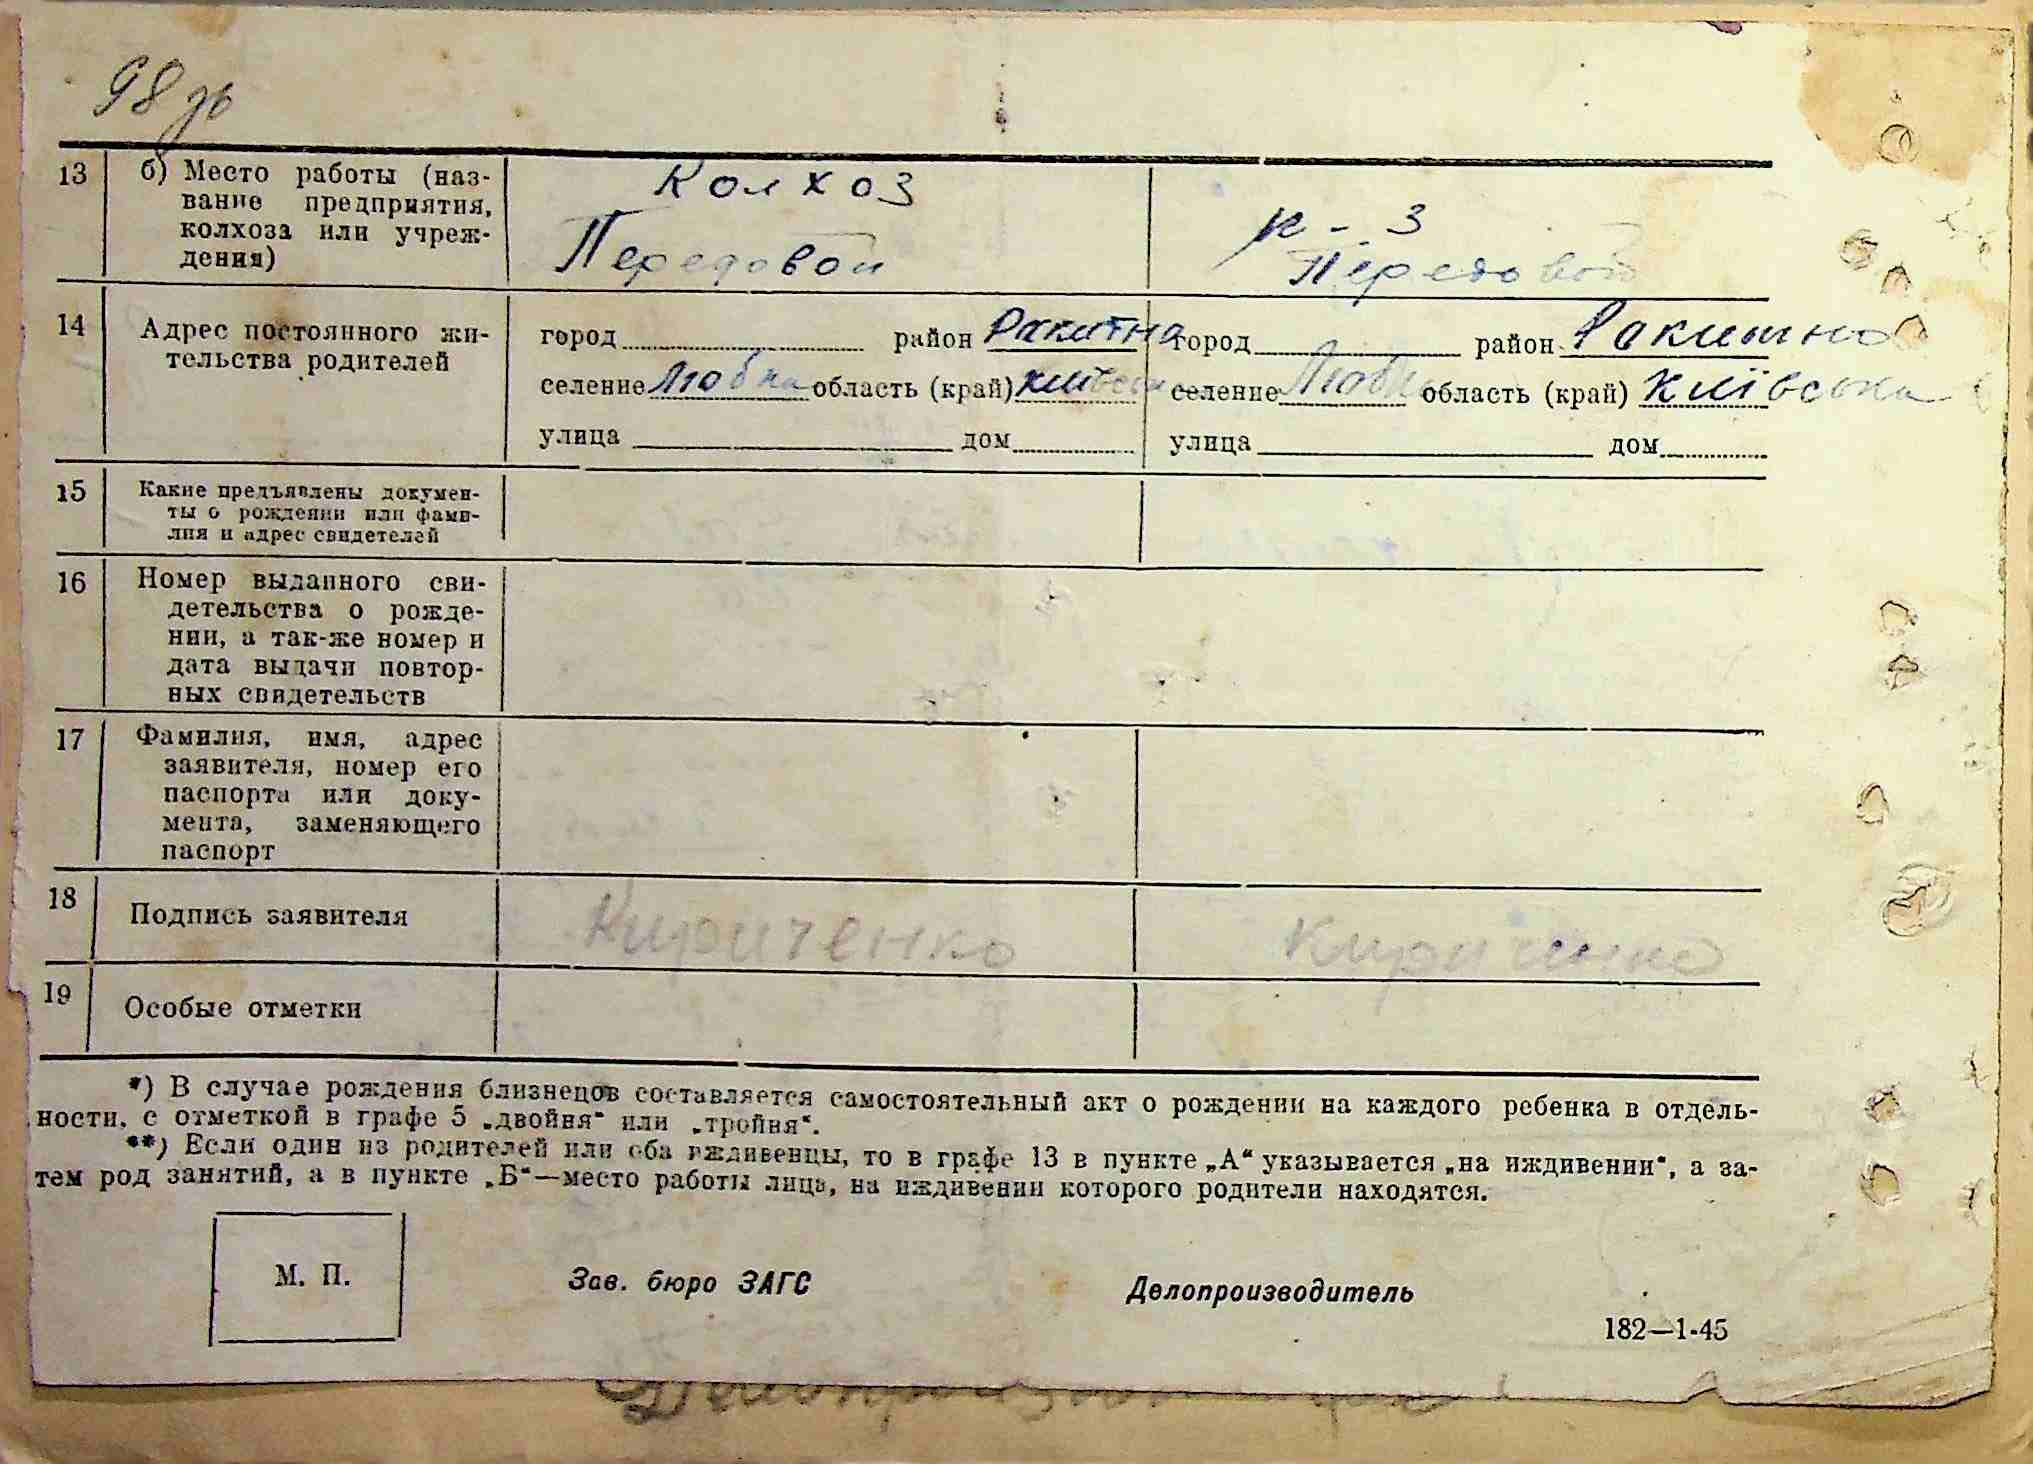 98 зв
13 б) Место работы (наз-
вание предприятия,
колхоза или учреж-
дения)
Колхоз
Передовой
к-з
Передовой
14 Адрес постоянного жи-
тельства родителей
город район Ракитна
селение Любка область (край) київськ
улица дом
город район Ракитно
селение Любка область (край) київська
улица дом
15 Какие предъявлены докумен-
ты о рождении или фами-
лия и адрес свидетелей
16 Номер выданного сви-
детельства о рожде-
нии, а так-же номер и
дата выдачи повтор-
ных свидетельств
17 Фамилия, имя, адрес
заявителя, номер его
паспорта или доку-
мента, заменяющего
паспорт
18 Подпись заявителя Кириченко Кириченко
19 Особые отметки
*) В случае рождения близнецов составляется самостоятельный акт о рождении на каждого ребенка в отдель-
ности, с отметкой в графе 5 „двойня“ или „тройня“.
**) Если один из родителей или оба иждивенцы, то в графе 13 в пункте „А“ указывается „на иждивении“, а за-
тем род занятий, а в пункте „Б“—место работы лица, на иждивении которого родители находятся.
М. П. Зав. бюро ЗАГС Делопроизводитель
182—1-45